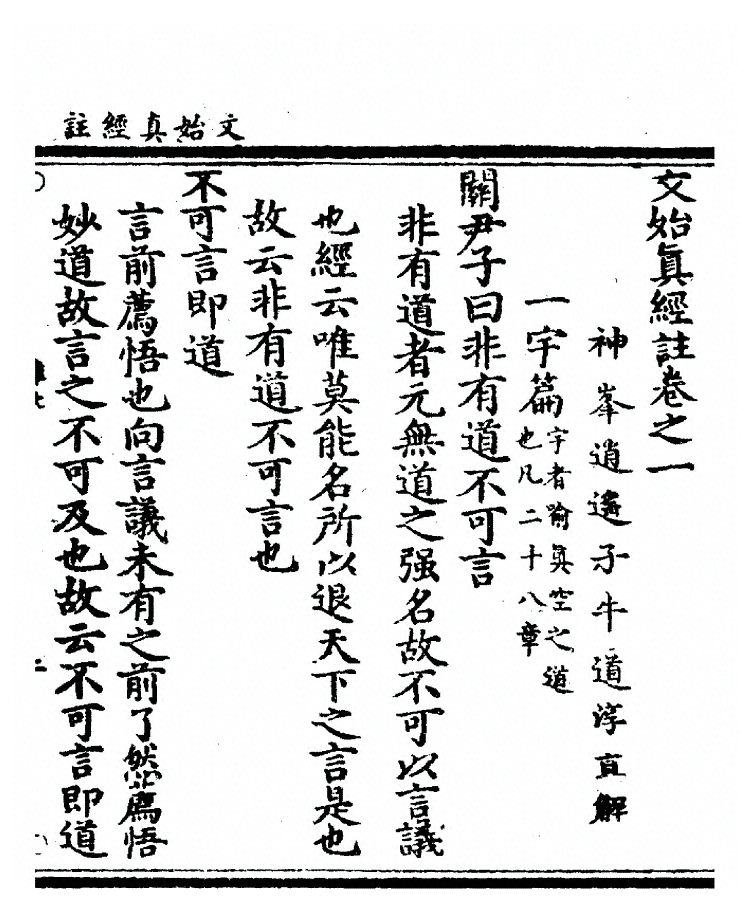 文始真經註
文始眞經註卷之一
神峯逍遙子牛道淳直解
一宇篇宇者喻眞空之道
也凡二十八章
關尹子曰非有道不可言
非有道者元無道之强名故不可以言議
也經云唯莫能名所以退天下之言是也
故云非有道不可言也
不可言即道
言前薦悟也向言議未有之前了然薦悟
妙道故言之不可及也故云不可言即道